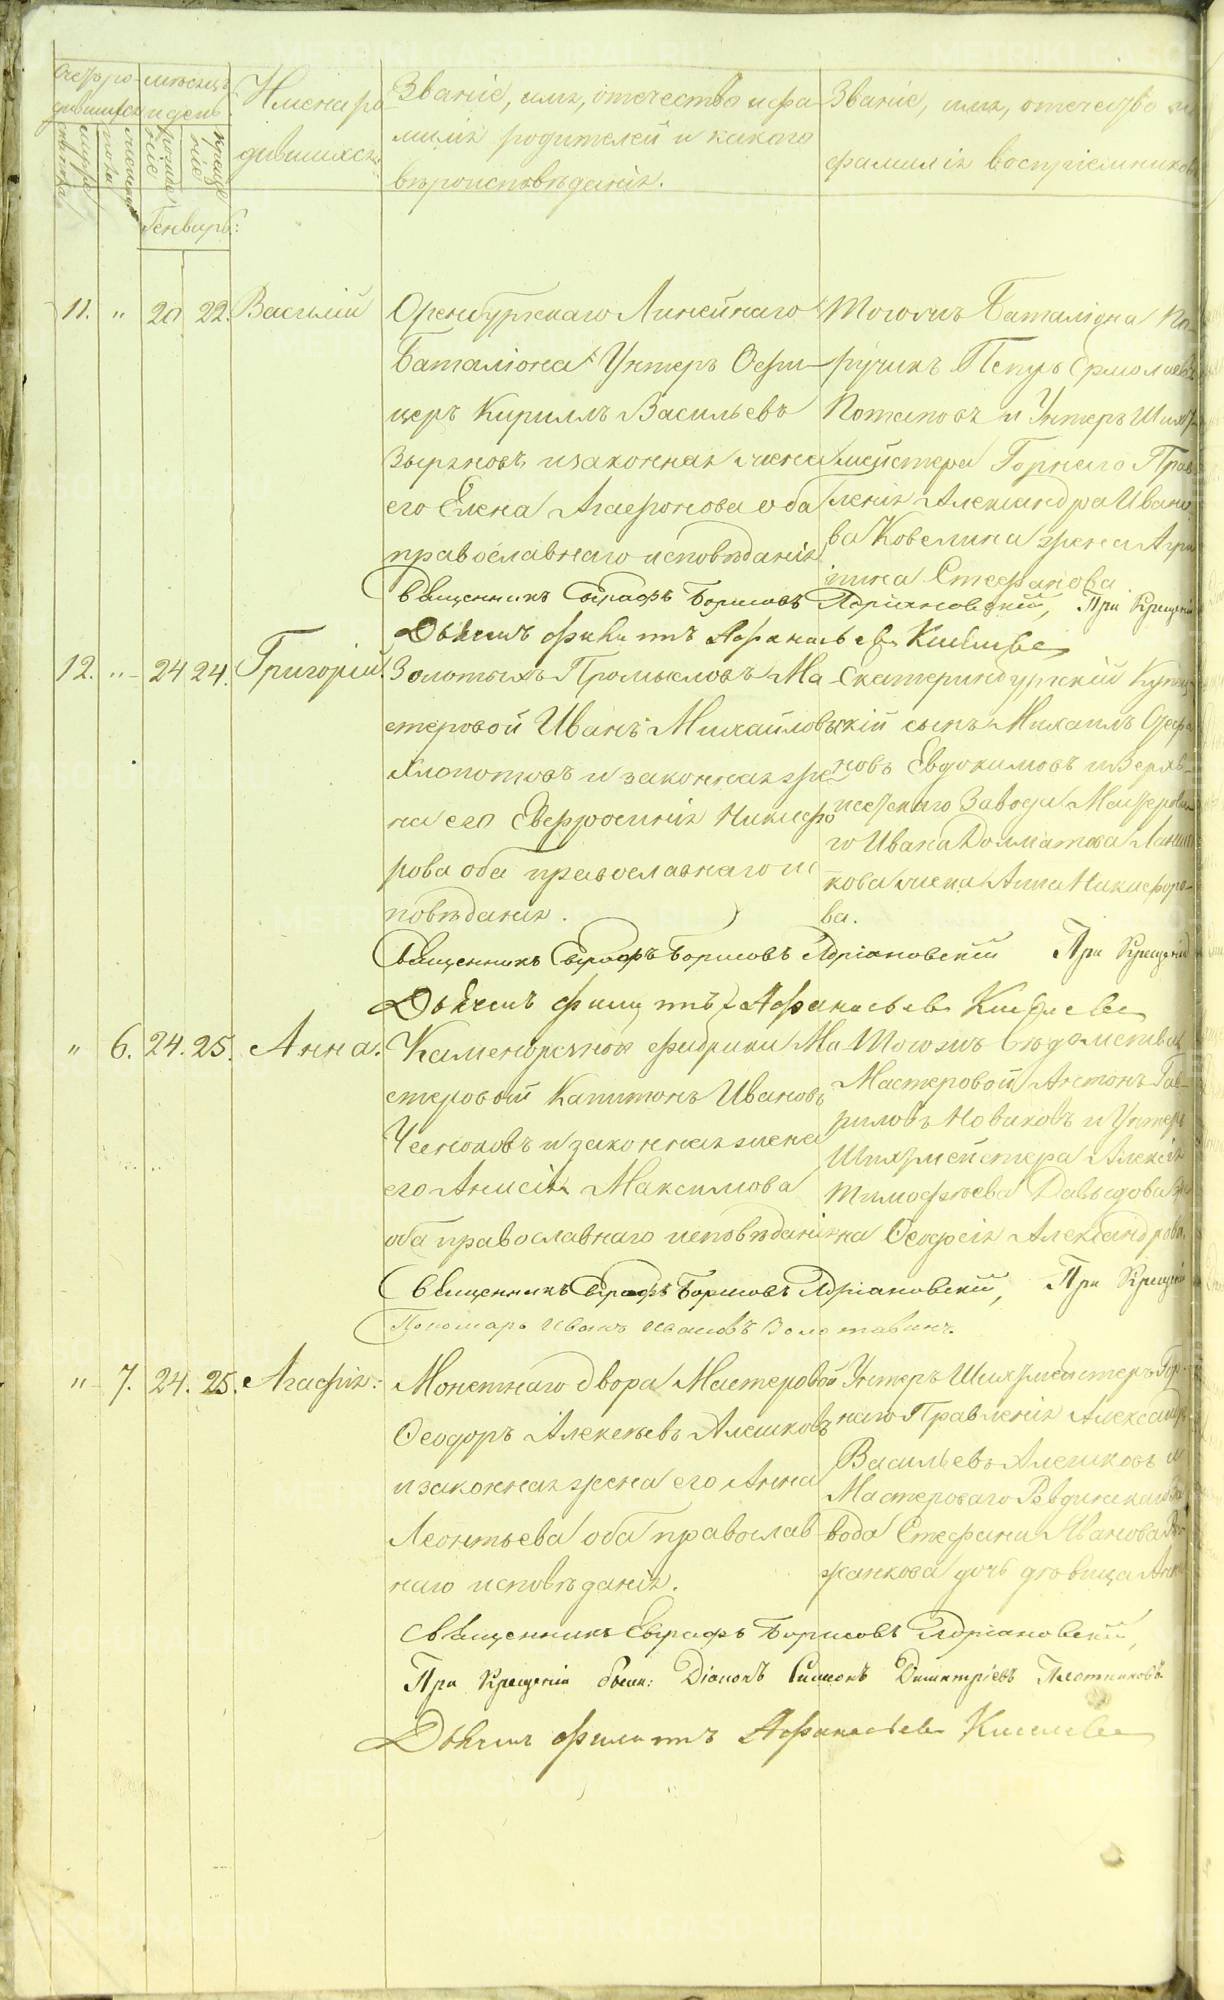 Имена ро-
дившихся
Званіе, имя, отечество и фа-
милія родителей и какого
вѣроисповѣданія.
Званіе, имя, отечество и
фамилія воспріемниковъ
мѣсяцъ
и день
Генварь:
11. " 20 22. Василій
Оренбургскаго Линейнаго
Баталіона Унтеръ Офи-
церъ Кириллъ Васильевъ
Зыряновъ и законная жена
его Елена Агафонова оба
православнаго исповѣданія
Тогожъ Баталіона По-
ручикъ Петръ Ермолаевъ
Потаповъ и Унтеръ Шихт-
мейстера Горнаго Прав-
ленія Александра Ивано-
ва Ковелина жена Агри-
пина Стефанова
Священникъ Евграфъ Борисовъ Адріановскій, При Крещеніи
Дьячекъ Филиппъ Афанасьевъ Киселевъ
12. " 24 24. Григорій
Золотыхъ Промысловъ Ма-
стеровой Иванъ Михайловъ
Хлопотовъ и законная же-
на его Евфросинія Никифо-
рова оба православнаго ис
повѣданія.
Екатеринбургскій Купец-
кій сынъ Михаилъ
новъ Евдокимовъ и Верхъ-
исетскаго Завода Мастерова-
го Ивана Долматова
кова жена Анна Никифоро-
ва.
Священникъ Евграфъ Борисовъ Адріановскій При Крещеніи
Дьячекъ Филиппъ Афанасьевъ Киселевъ
" 6. 24. 25. Анна.
Каменорезной фабрики Ма-
стеровой Капитонъ Ивановъ
и законная жена
его Анисія Максимова
оба православнаго исповѣданія
Тогожъ Вѣдомства
Мастеровой Антонъ Гав-
риловъ Новиковъ и Унтеръ
Шихтмейстера Алексѣя
Тимофѣева Давыдова же-
на Ѳеофсія Александрова.
Священникъ Евграфъ Борисовъ Адріановскій, При Крещеніи
Пономарь Иванъ Ивановъ Золотавинъ.
" 7. 24. 25. Агафія:
Монетнаго двора Мастеровой
Ѳеодоръ Алексѣевъ Алешковъ
и законная жена его Анна
Леонтьева оба православ
наго исповѣданія.
Унтеръ Шихтмейстеръ Гор-
наго Правленія Александръ
Васильевъ Алешковъ и
Мастероваго Ревдинскаго За-
вода Стефана Иванова
жанкова дочь дѣвица Анна
Священникъ Евграфъ Борисовъ Адріановскій,
При Крещеніи были: Діаконъ Симонъ Димитріевъ Плотниковъ
Дьячекъ Филиппъ Афанасьевъ Киселевъ
METRIKI.GASO-URAL.RU